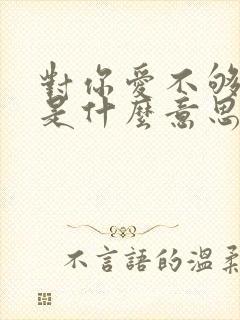 對你愛不够
是什麼意思
不言語的温柔